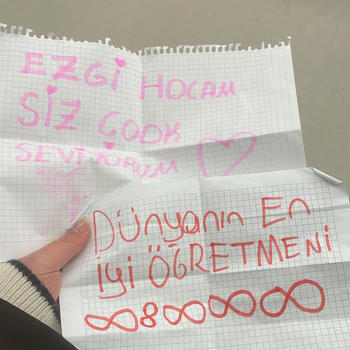 EZGİ HOCAM
SİZ ÇOOK
SEVİYORUM
DÜNYANIN EN
İYİ ÖĞRETMENİ
∞8∞∞∞